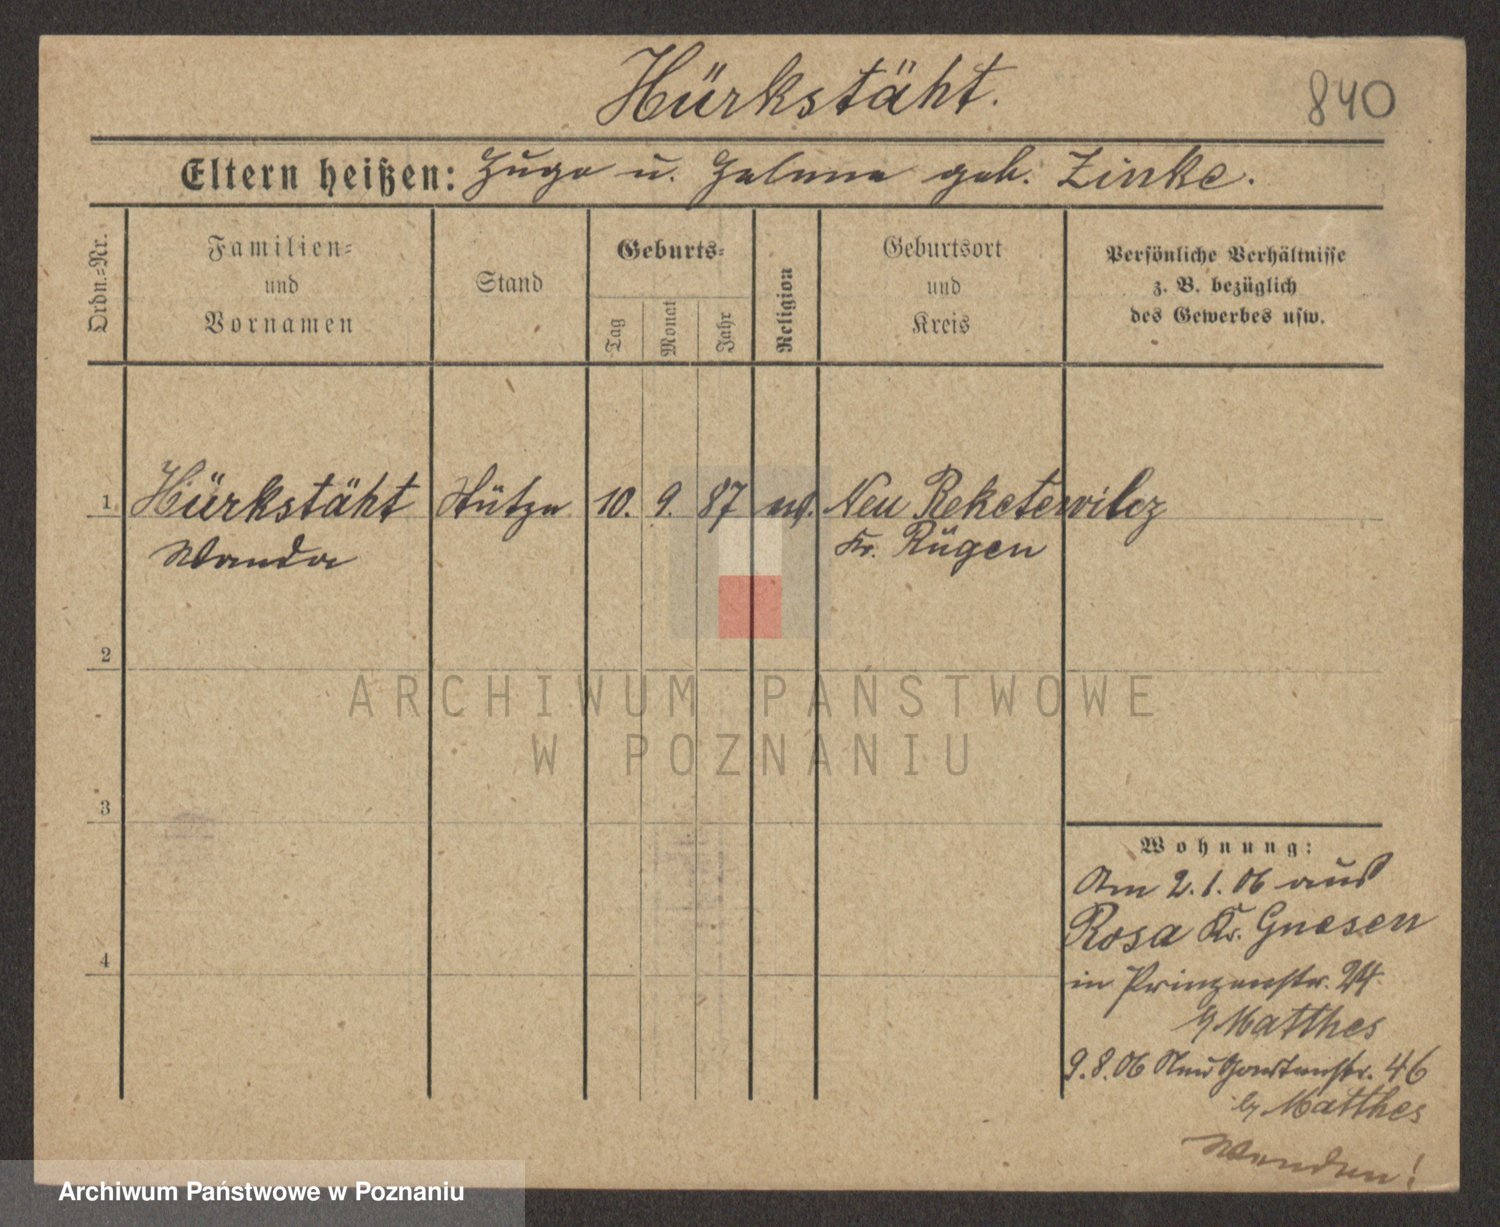 Hürkstäht.
840
Eltern heißen: Hugo u. Helene geb. Zinke.
Ordn.=Nr.
Familien=
und
Vornamen
Stand
Geburts=
Tag
Monat
Jahr
Religion
Geburtsort
und
Kreis
Persönliche Verhältnisse
z. B. bezüglich
des Gewerbes usw.
1 Hürkstäht Stütze 10. 9. 87 ev. Neu Reketewilcz
Wanda Kr. Rügen
2
ARCHIWUM PAŃSTWOWE
W POZNANIU
3
Wohnung:
Am 2.1.06 aus
Rosa Kr. Gnesen
4
in Prinzenstr. 24.
b/ Matthes
9.8.06 Neu Gartenstr. 46
b/ Matthes
Wenden!
Archiwum Państwowe w Poznaniu